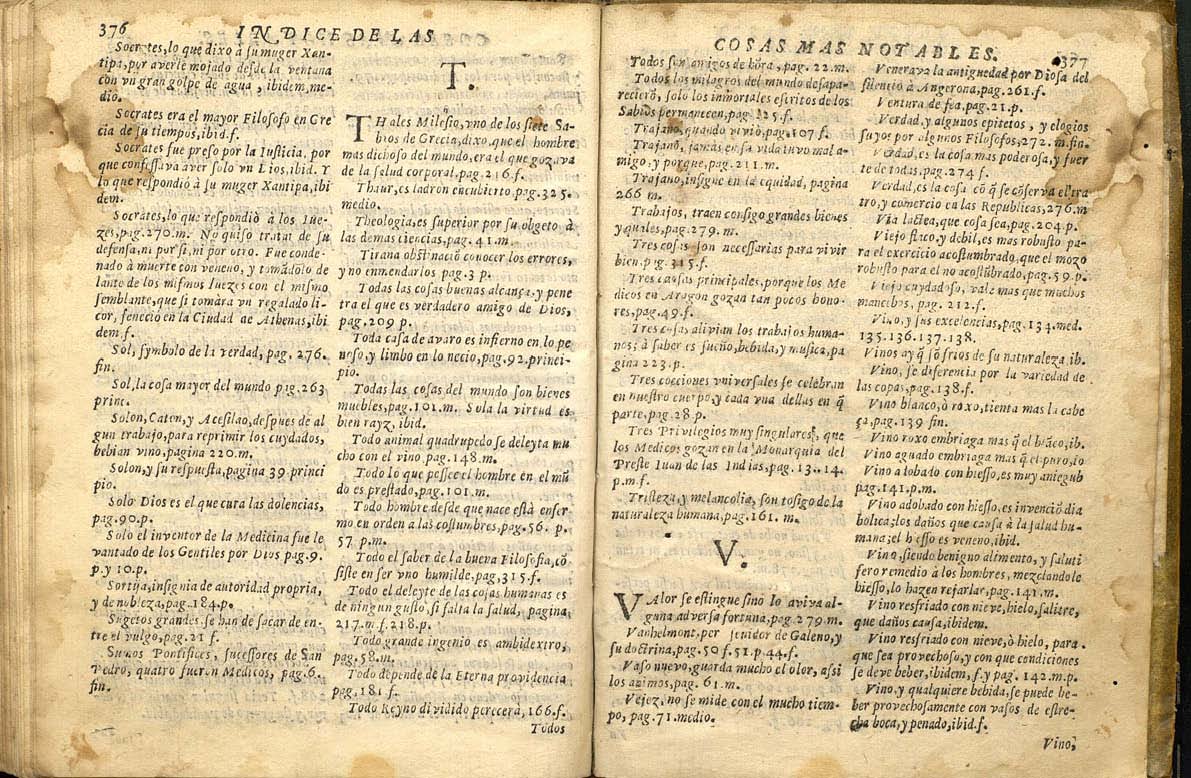 376 INDICE DE LAS
Socrates, lo que dixo à su muger Xan-
tipa, por averle mojado desde la ventana
con vn gran golpe de agua, ibidem, me-
dio.
Socrates era el mayor Filosofo en Gre
cia de su tiempos, ibid. f.
Socrates fue preso por la Iusticia, por
que confessava aver solo vn Dios, ibid. Y
lo que respondiò à su muger Xantipa, ibi
dem.
Socrates, lo que respondiò à los Iue-
zes, pag. 270. m. No quiso tratar de su
defensa, ni por si, ni por otro. Fue conde-
nado à muerte con veneno, y tomãdolo de
lante de los mismos Iuezes con el mismo
semblante, que si tomàra vn regalado li-
cor, feneciò en la Ciudad de Athenas, ibi
dem. f.
Sol, symbolo de la verdad, pag. 276.
fin.
Sol, la cosa mayor del mundo pag. 263
princ.
Solon, Caton, y Acesilao, despues de al
gun trabajo, para reprimir los cuydados,
bebian vino, pagina 220. m.
Solon, y su respuesta, pagina 39 princi
pio.
Solo Dios es el que cura las dolencias,
pag. 90. p.
Solo el inventor de la Medicina fue le
vantado de los Gentiles por Dios pag. 9.
p. y 10. p.
Sortija, insignia de autoridad propria,
y de nobleza, pag. 184. p.
Sugetos grandes se han de sacar de en-
tre el vulgo, pag. 21 f.
Sumos Pontifices, sucessores de San
Pedro, quatro fueron Medicos, pag. 6.
fin.
T.
THales Milesio, vno de los siete Sa-
bios de Grecia, dixo, que el hombre
mas dichoso del mundo, era el que gozava
de la salud corporal, pag. 216. f.
Thaur, es ladron encubierto, pag. 325.
medio.
Theologia, es superior por su obgeto à
las demas ciencias, pag. 41. m.
Tirana obstinaciò conocer los errores,
y no enmendarlos pag. 3 p.
Todas las cosas buenas alcança, y pene
tra el que es verdadero amigo de Dios,
pag. 209 p.
Toda casa de avaro es infierno en lo pe
noso, y limbo en lo necio, pag. 92. princi-
pio.
Todas las cosas del mundo son bienes
muebles, pag. 101. m. Sola la virtud es
bien rayz, ibid.
Todo animal quadrupedo se deleyta mu
cho con el vino pag. 148. m.
Todo lo que possee el hombre en el mũ
do es prestado, pag. 101. m.
Todo hombre desde que nace està enfer
mo en orden a las costumbres, pag. 56. p.
57. p. m.
Todo el saber de la buena Filosofia, cõ
siste en ser vno humilde, pag, 315. f.
Todo el deleyte de las cosas humanas es
de ningun gusto, si falta la salud, pagina,
217. m f. 218. p.
Todo grande ingenio es ambidextro,
pag. 58. m.
Todo depende de la Eterna providencia
pag. 181 f.
Todo Reyno dividido perecerà, 166. f.
Todos
COSAS MAS NOTABLES. 377
Todos son amigos de hõra, pag. 22. m.
Todos los milagros del mundo desapa-
recierõ, solo los inmortales escritos de los
Sabios permanecen, pag. 125. f.
Trajano, quando viviò, pag. 107 f.
Trajano, jamàs en su vida tuvo mal a-
migo, y porque, pag. 211. m.
Trajano, insigne en la equidad, pagina
266 m.
Trabajos, traen consigo grandes bienes
y quales, pag. 279. m.
Tres cosas son necessarias para vivir
bien, pag. 315. f.
Tres causas principales, porque los Me
dicos en Aragon gozan tan pocos hono-
res, pag. 49. f.
Tres cosas alivian los trabajos huma-
nos; à saber es sueño, bebida, y musica, pa
gina 223. p.
Tres cocciones vniversales se celebran
en nuestro cuerpo, y cada vna dellas en q̃
parte, pag. 28. p.
Tres Privilegios muy singulares, que
los Medicos gozan en la Monarquia del
Preste Iuan de las Indias, pag. 13. 14.
p. m. f.
Tristeza, y melancolia, son tosigo de la
naturaleza humana, pag. 161. m.
V.
VAlor se estingue sino lo aviva al-
guna adversa fortuna, pag. 279. m.
Vanhelmont, per seuidor de Galeno, y
su doctrina, pag. 50 f. 51. p. 44. f.
Vaso nuevo, guarda mucho el olor, assi
los animos, pag. 61. m.
Vejez, no se mide con el mucho tiem-
po, pag. 71. medio.
Venerava la antiguedad por Diosa del
silencio à Angerona, pag. 261. f.
Ventura de fea, pag. 21. p.
Verdad, y algunos epitetos, y elogios
suyos por algunos Filosofos, 272. m. fin.
Verdad, es la cosa mas poderosa, y fuer
te de todas, pag. 274 f.
Verdad, es la cosa cõ q̃ se cõserva el tra
tro, y comercio en las Republicas, 276. m
Via lactea, que cosa sea, pag. 204. p.
Viejo flaco, y debil, es mas robusto pa-
ra el exercicio acostumbrado, que el mozo
robusto para el no acostũbrado, pag. 59. p.
Viejo cuydadoso, vale mas que muchos
mancebos, pag. 212. f.
Vino, y sus excelencias, pag. 134. med.
135. 136. 137. 138.
Vinos ay q̃ sõ frios de su naturaleza ib.
Vino, se diferencia por la variedad de
las copas, pag. 138. f.
Vino blanco, ò roxo, tienta mas la cabe
ça, pag. 139 fin.
Vino roxo embriaga mas q̃ el blãco, ib.
Vino aguado embriaga mas q̃ el puro, io
Vino alobado con hiesso, es muy aniegub
pag. 141. p. m.
Vino adobado con hiesso, es invenciõ dia
bolica; los daños que causa à la salud hu-
mana; el hiesso es veneno, ibid.
Vino, siendo benigno alimento, y saluti
fero remedio à los hombres, mezclandole
hiesso, lo hazen refalzar, pag. 141. m.
Vino resfriado con nieve, hielo, salitre,
que daños causa, ibidem.
Vino resfriado con nieve, ò hielo, para
que sea provechoso, y con que condiciones
se deve beber, ibidem, f. y pag. 142. m. p.
Vino, y qualquiere bebida, se puede be-
ber provechosamente con vasos de estre-
cha boca, y penado, ibid. f.
Vino,